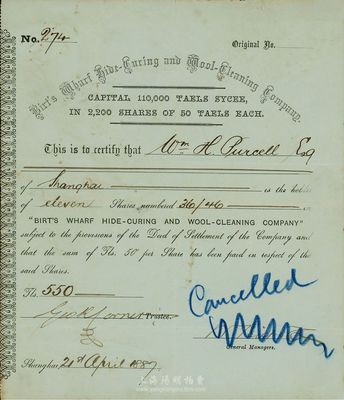 No. 974
Original No.
Birt's Wharf Hide-Curing and Wool-Cleaning Company.
CAPITAL 110,000 TAELS SYCEE,
IN 2,200 SHARES OF 50 TAELS EACH.
This is to certify that Wm H. Purcell Esq
of Shanghai is the holder
of eleven Shares numbered 36/46 in
"BIRT'S WHARF HIDE-CURING AND WOOL-CLEANING COMPANY"
subject to the provisions of the Deed of Settlement of the Company and
that the sum of Tls. 50 per Share has been paid in respect of the
said Shares.
Tls. 550
Cancelled
Trustee.
General Managers.
Shanghai, 21st April 1887
上海阳明拍卖